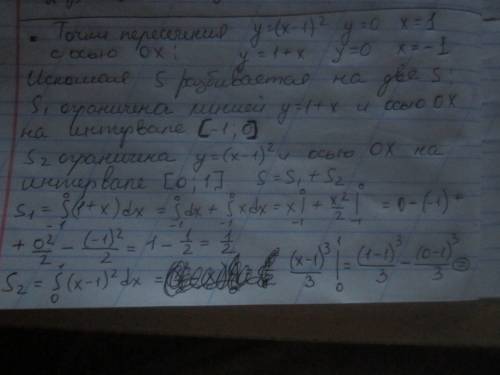 • Точки пересечения y=(x-1)² y=0 x=1
с осью OX: y=1+x y=0 x=-1
Искомая S разбивается на две S:
S₁ ограничина линией y=1+x и осью OX
на интервале [-1; 0]
S₂ ограничина y=(x-1)² и осью OX на
интервале [0; 1] S=S₁+S₂
S₁=∫₋₁⁰(1+x)dx=∫₋₁⁰dx+∫₋₁⁰xdx=x|₋₁⁰+x²/2|₋₁⁰=0-(-1)+
+0²/2-(-1)²/2=1-1/2=1/2
S₂=∫₀¹(x-1)²dx= (x-1)³/3|₀¹=(1-1)³/3-(0-1)³/3=